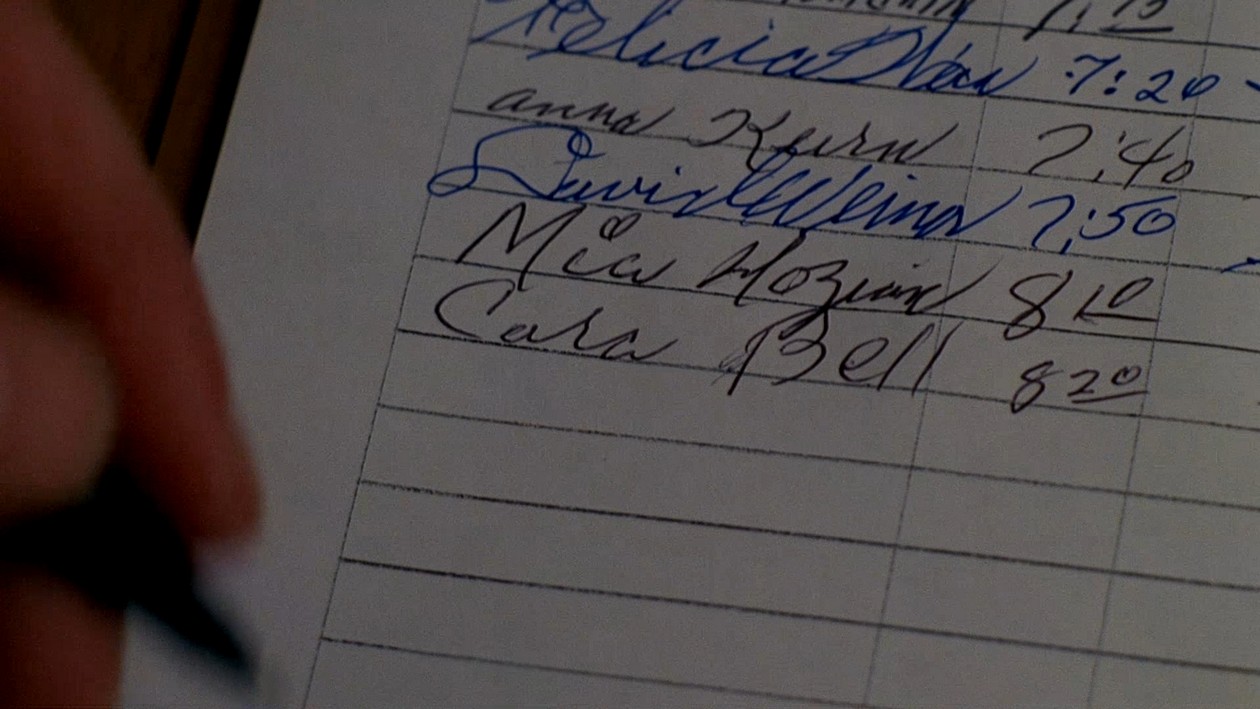 Felicia 7:20
anna Kurn 7:40
David Weiner 7:50
Mia 8 10
Cara Bell 8 20